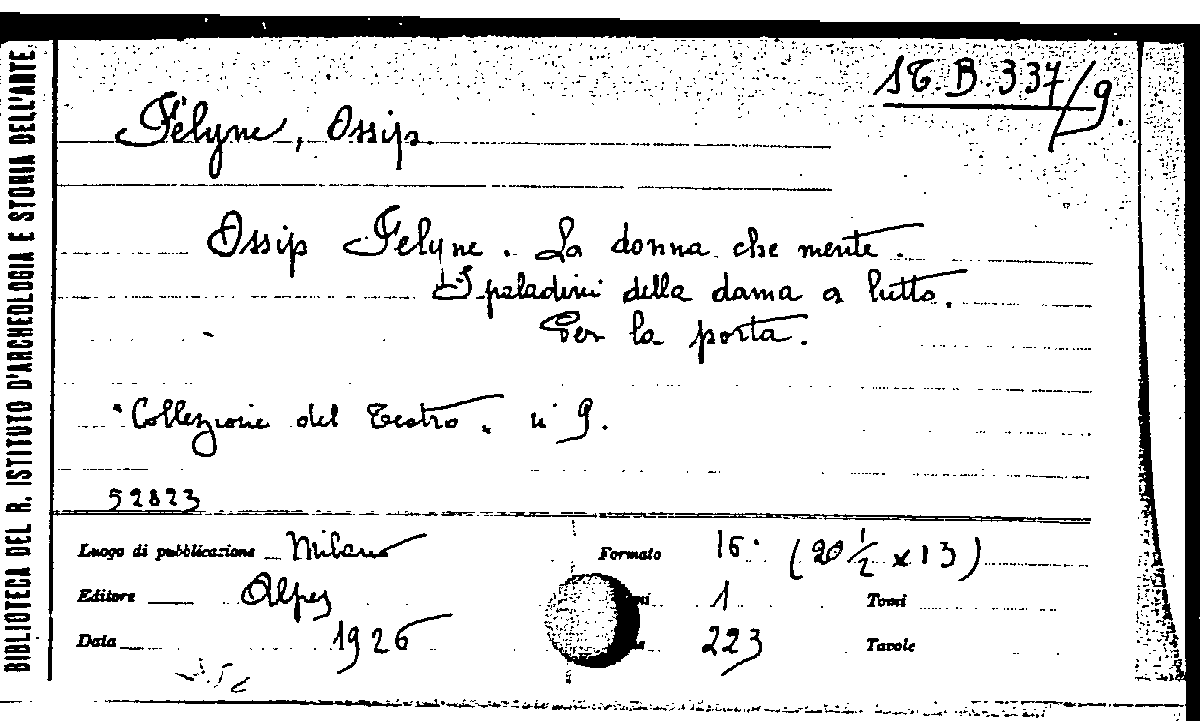 BIBLIOTECA DEL R. ISTITUTO D'ARCHEOLOGIA E STORIA DELL'ARTE
ST. B. 337/9.
Félyne, Ossip.
Ossip Felyne. La donna che mente.
I paladini della dama a lutto.
Per la porta.
"Collezione del Teatro" n° 9.
52823
Luogo di pubblicazione Milano
Formato 16° (20 ½ x 13)
Editore Alpes
1
Tomi
Data 1926
223
Tavole